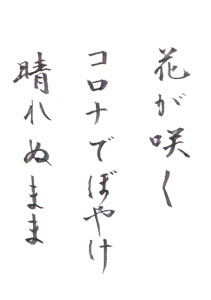 花が咲く
コロナでぼやけ
晴れぬまま